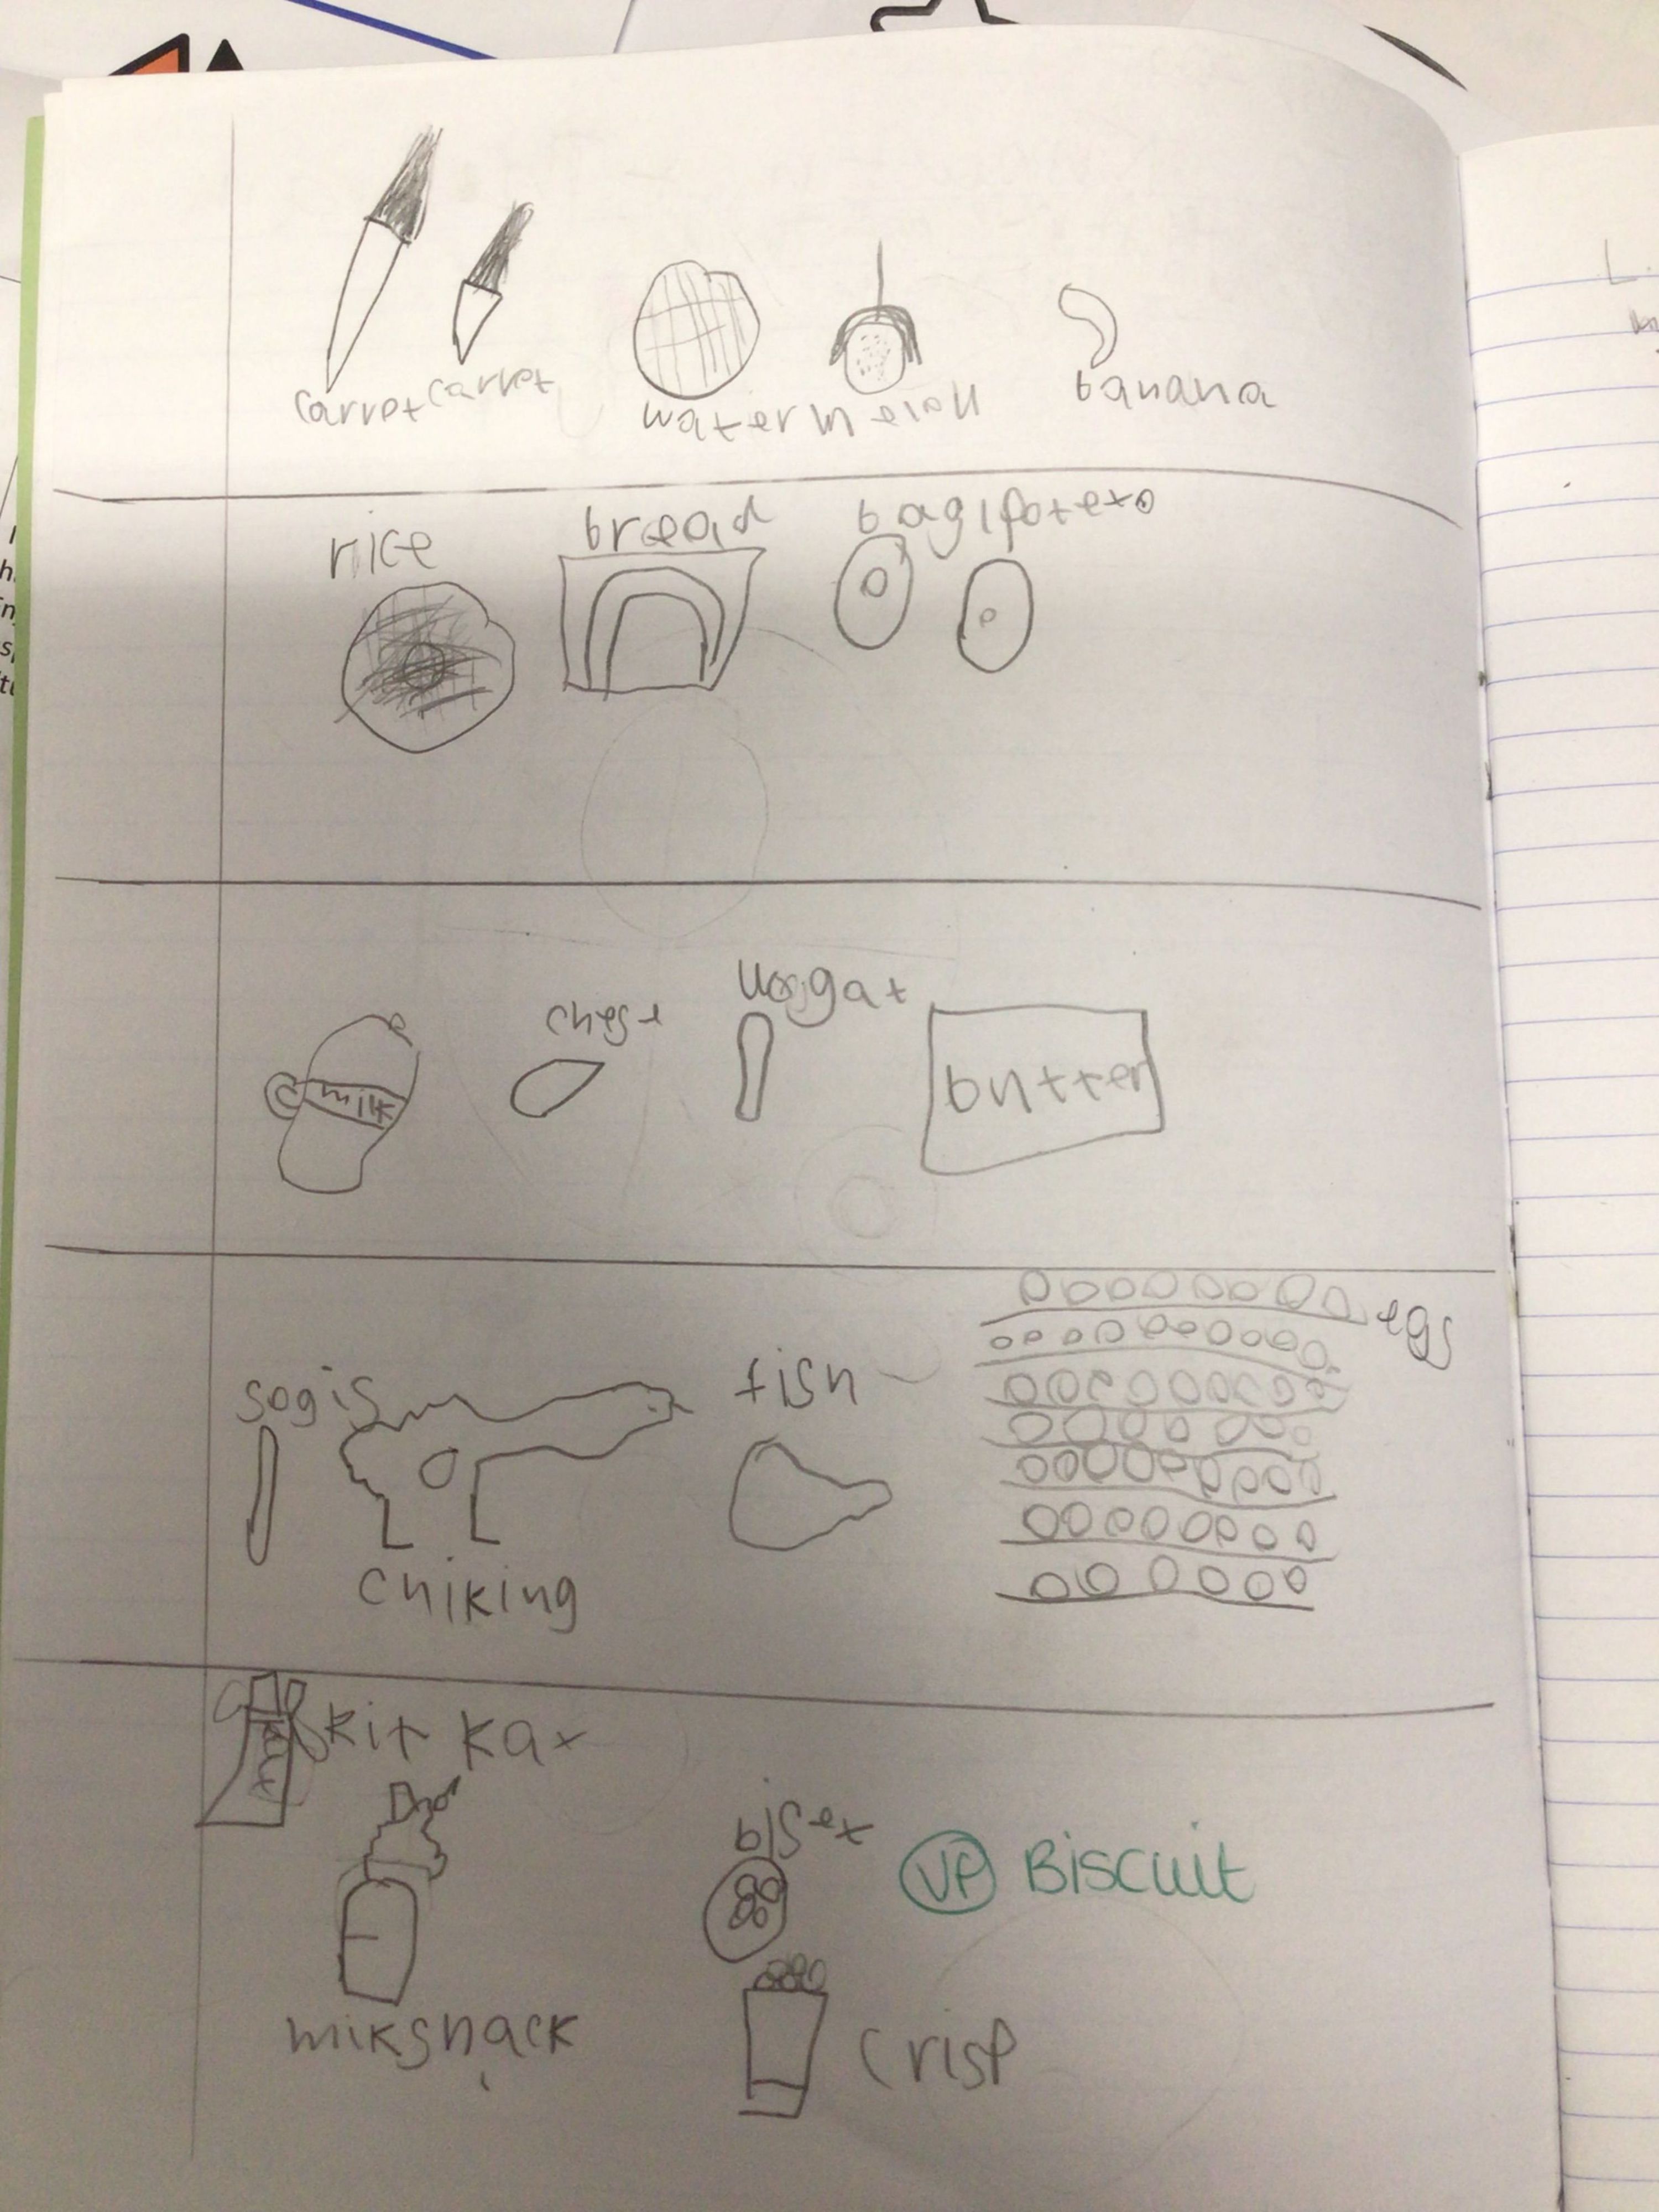 carrot carrot
water melon
banana
rice
bread
bagi potexo
milk
chese
uoggat
butter
sogis
chiking
fish
egs
kit kat
mikshack
bisex
VF Biscuit
crisp